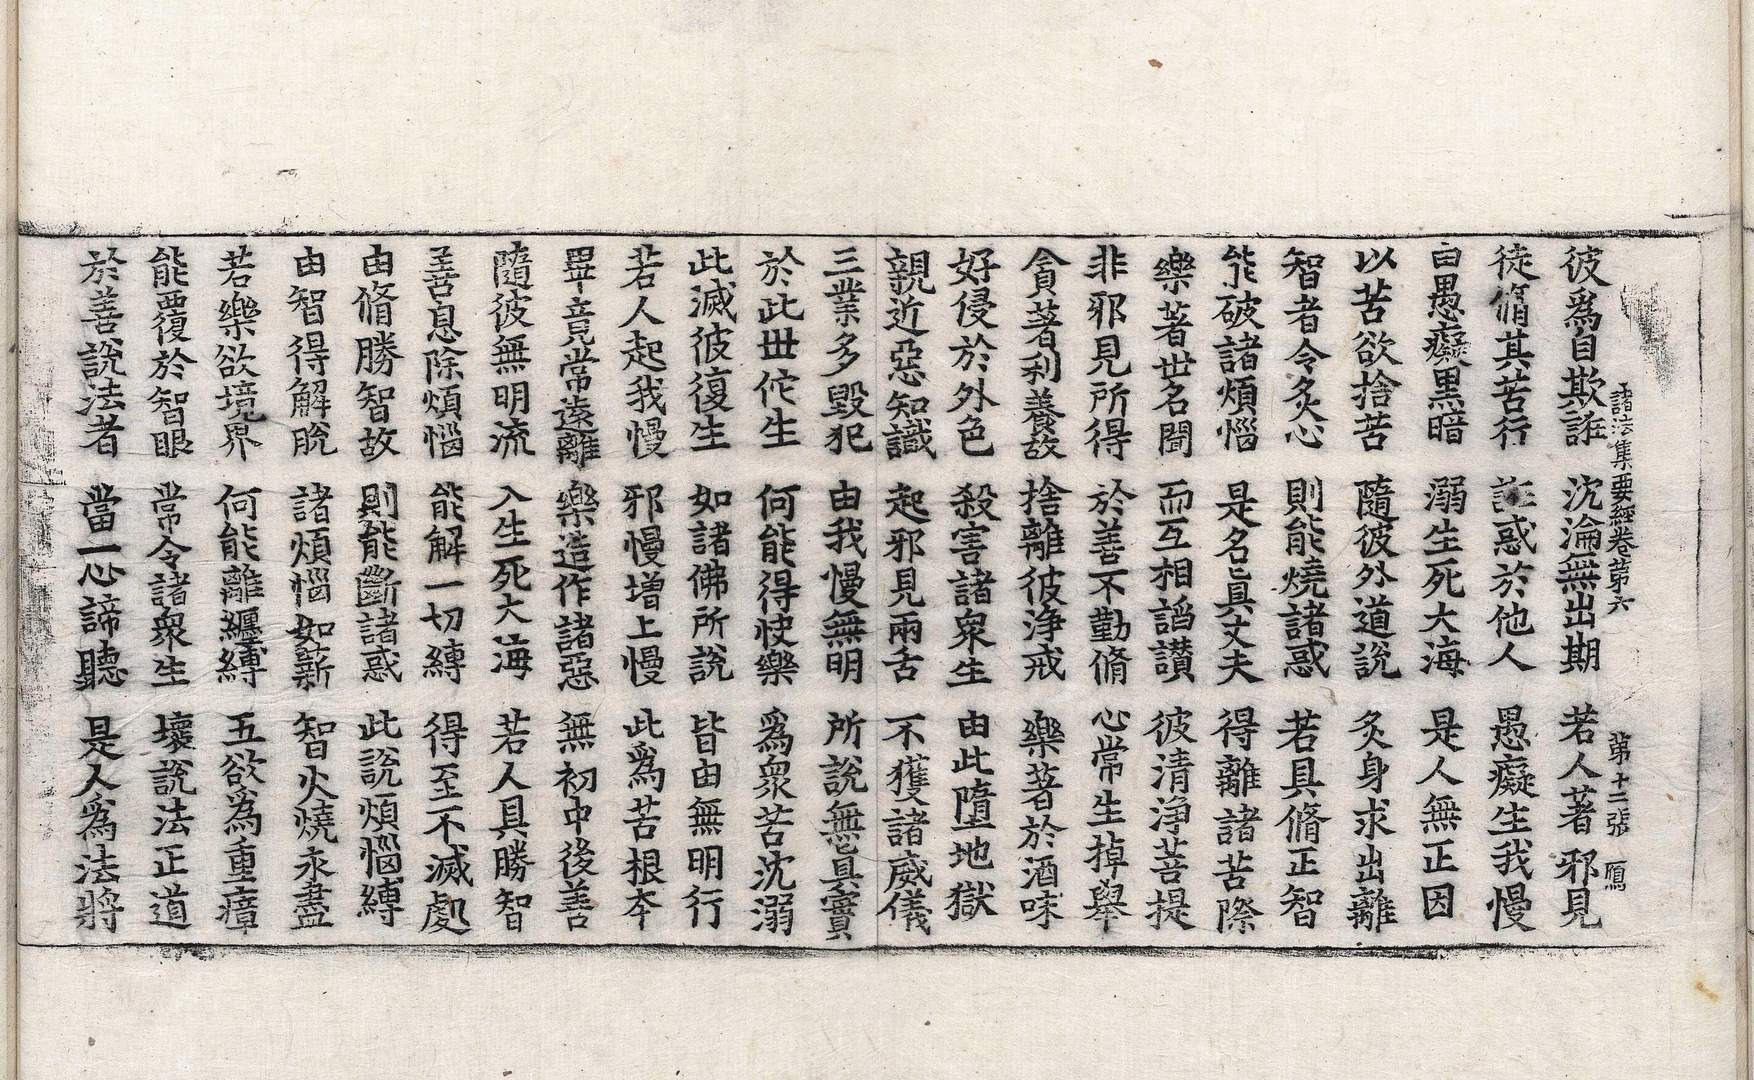 諸法集要經卷第六 第十二張 鴈
彼爲自欺誑 沈淪無出期 若人著邪見
徒脩其苦行 誑惑於他人 愚癡生我慢
由愚癡黑暗 溺生死大海 是人無正因
以苦欲捨苦 隨彼外道說 炙身求出離
智者令炙心 則能燒諸惑 若具脩正智
能破諸煩惱 是名眞丈夫 得離諸苦際
樂著世名聞 而互相謟讃 彼清淨菩提
非邪見所得 於善不勤脩 心常生掉舉
貪著利養故 捨離彼淨戒 樂著於酒味
好侵於外色 殺害諸衆生 由此墮地獄
親近惡知識 起邪見兩舌 不獲諸威儀
三業多毀犯 由我慢無明 所說無眞實
於此世佗生 何能得快樂 爲衆苦沈溺
此滅彼復生 如諸佛所說 皆由無明行
若人起我慢 邪慢增上慢 此爲苦根本
畢竟常遠離 樂造作諸惡 無初中後善
隨彼無明流 入生死大海 若人具勝智
善息除煩惱 能解一切縛 得至不滅處
由脩勝智故 則能斷諸惑 此說煩惱縛
由智得解脫 諸煩惱如薪 智火燒永盡
若樂欲境界 何能離纒縛 五欲爲重瘴
能覆於智眼 常令諸衆生 壞說法正道
於善說法者 當一心諦聽 是人爲法將